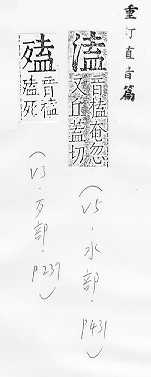 重訂直音篇
溘 音榼奄忽
又丘蓋切
(V5.水部.P431)
殪 音榼
殪死
(V3.歹部.P239)